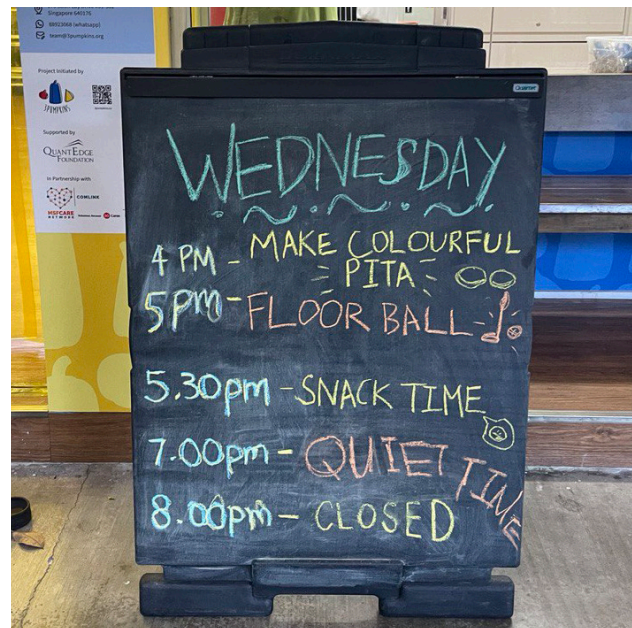 Singapore 640176
98923068 (whatsapp)
team@3pumpkins.org
Project Initiated by
3PUMPKINS
Supported by
QUANTEDGE
FOUNDATION
In Partnership with
COMLINK
MSFCARE
NETWORK
Quartet
WEDNESDAY
4 PM - MAKE COLOURFUL
PITA
5pm - FLOOR BALL
5.30pm - SNACK TIME
7.00pm - QUIET TIME
8.00pm - CLOSED